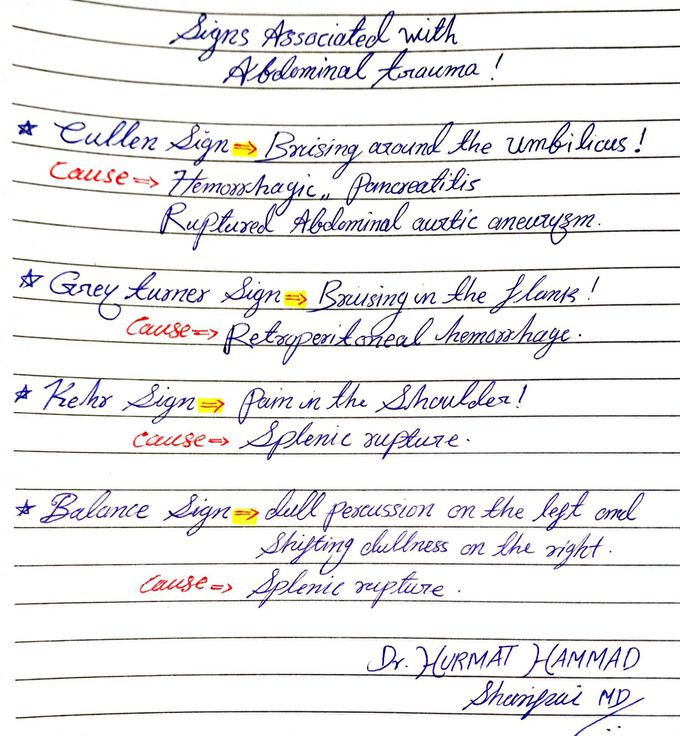 Signs Associated with
Abdominal trauma!
☆ Cullen Sign ⇒ Bruising around the umbilicus!
Cause ⇒ Hemorrhagic,, Pancreatitis
Ruptured Abdominal aortic aneurysm.
☆ Grey turner Sign ⇒ Bruising in the flank!
Cause ⇒ Retroperitoneal hemorrhage.
☆ Kehr Sign ⇒ pain in the Shoulder!
Cause ⇒ Splenic rupture.
☆ Balance Sign ⇒ dull percussion on the left and
Shifting dullness on the right.
Cause ⇒ Splenic rupture.
Dr. HURMAT HAMMAD
MD